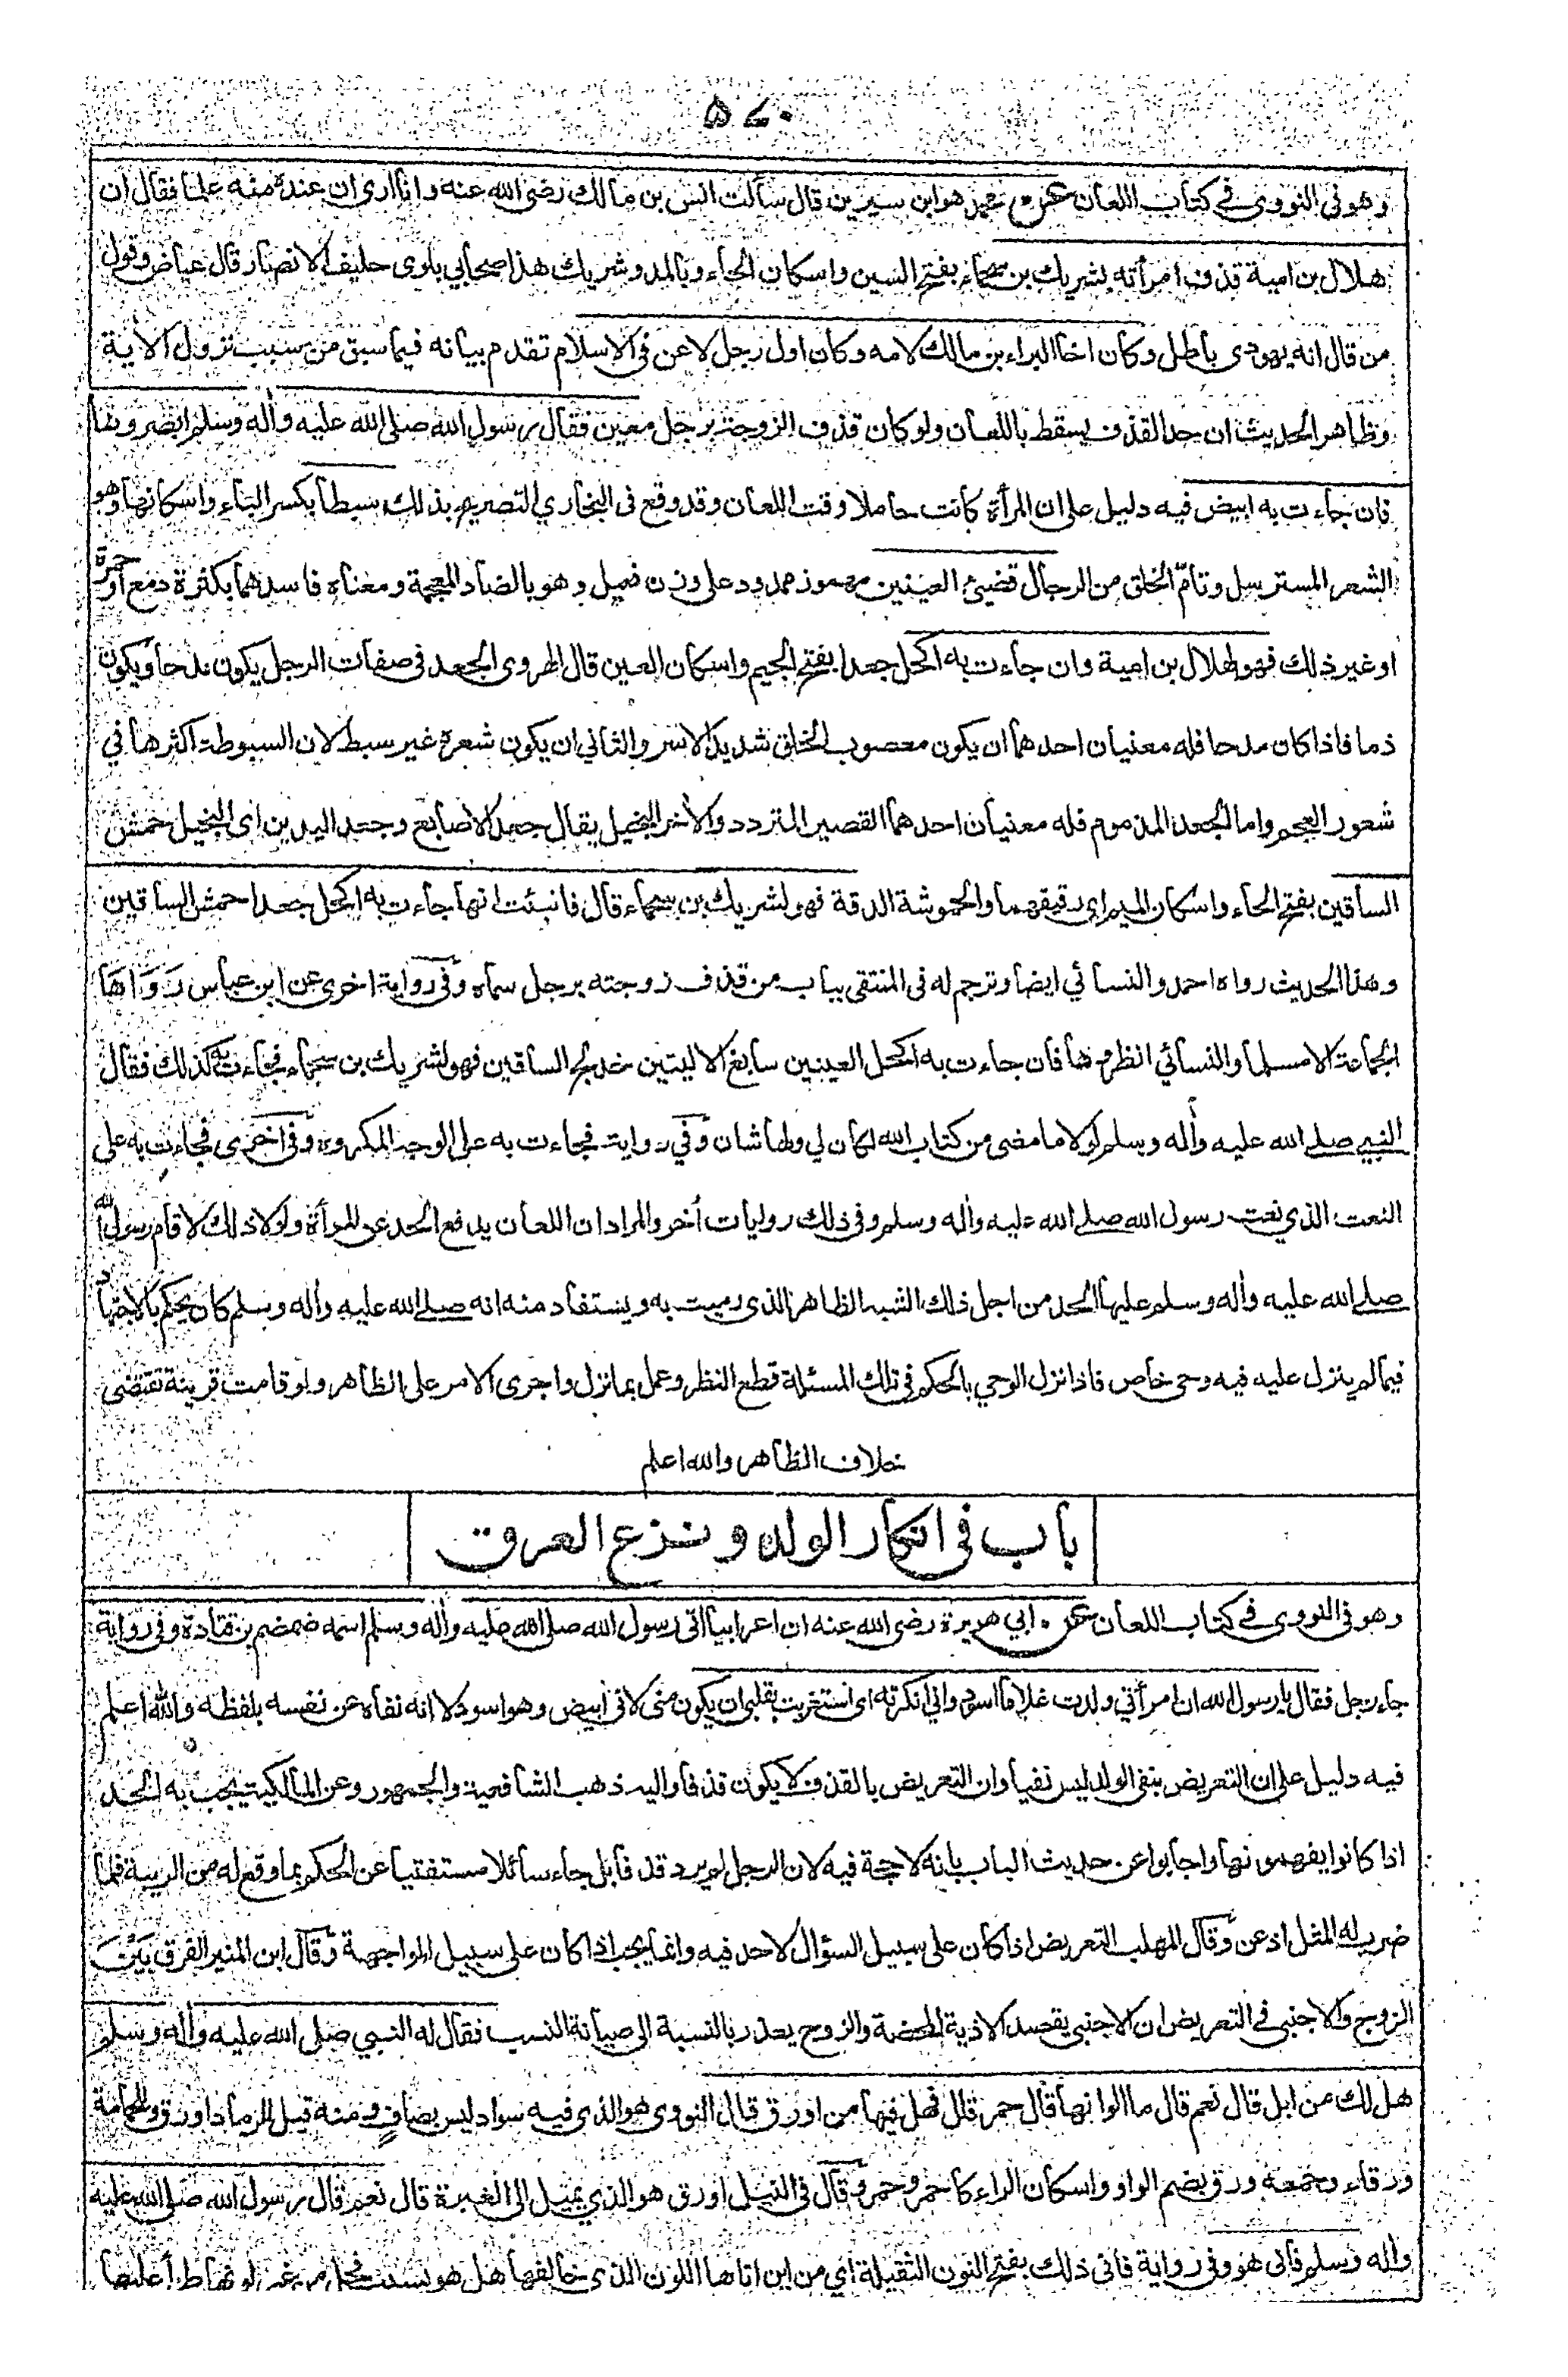 ٥٧٠
وهو في النووي في كتاب اللعان عن محمد هو ابن سيرين قال سألت انس بن مالك رضي الله عنه وانا ارى ان عنده منه علما فقال ان
هلال بن امية قذف امرأته بشريك بن سحماء بفتح السين واسكان الحاء وبالمد وشريك هذا صحابي بلوى حليف الانصار قال عياض وقول
من قال انه يهودى باطل وكان اخا البراء بن مالك لامه وكان اول رجل لاعن في الاسلام تقدم بيانه فيما سبق من سبب نزول الاية
وظاهر الحديث ان حد القذف يسقط باللعان ولو كان قذف الزوجة برجل معين فقال رسول الله صلى الله عليه وأله وسلم ابصروها
فان جاءت به ابيض فيه دليل على ان المرأة كانت حاملا وقت اللعان وقد وقع فى البخاري التصريح بذلك سبطا بكسر الباء واسكانها وهو
الشعر المسترسل وتامّ الخلق من الرجال قضيئ العينين مهموز ممدود على وزن فعيل وهو بالضاد المعجمة ومعناه فاسدهما بكثرة دمع او حمرة
او غير ذلك فهو لهلال بن امية وان جاءت به اكحل جعدا بفتح الجيم واسكان العين قال الهروى الجعد فى صفات الرجل يكون مدحا ويكون
ذما فاذا كان مدحا فله معنيان احدهما ان يكون معصوب الخلق شديد الاسر والثاني ان يكون شعره غير سبط لان السبوطة اكثرها في
شعور العجم واما الجعد المذموم فله معنيان احدهما القصير المتردد والأخر البخيل يقال جعد الاصابع وجعد اليدين اى البخيل حمش
الساقين بفتح الحاء واسكان الميم اى دقيقهما والحموشة الدقة فهو لشريك بن سحماء قال فانبئت انها جاءت به اكحل جعدا حمش الساقين
وهذا الحديث رواه احمد والنسائي ايضا وترجم له فى المنتقى بباب من قذف زوجته برجل سماه وفى رواية اخرى عن ابن عباس رَوَاهَا
الجماعة الا مسلما والنسائي انظروها فان جاءت به اكحل العينين سابغ الاليتين خدلج الساقين فهو لشريك بن سحماء فجاءت به كذلك فقال
النبي صلى الله عليه وأله وسلم لولا ما مضى من كتاب الله لكان لي ولها شان وفي رواية فجاءت به على الوجه المكروه وفى اخرى فجاءت به على
النعت الذي نعت رسول الله صلى الله عليه وأله وسلم وفى ذلك روايات أخر والمراد ان اللعان يدفع الحد عن المرأة ولولا ذلك لاقام رسول الله
صلى الله عليه وأله وسلم عليها الحد من اجل ذلك الشبه الظاهر الذى رميت به ويستفاد منه انه صلى الله عليه وأله وسلم كان يحكم بالاجتهاد
فيما لم ينزل عليه فيه وحى خاص فاذا نزل الوحي بالحكم في تلك المسئلة قطع النظر وعمل بما نزل واجرى الامر على الظاهر ولو قامت قرينة تقتضى
خلاف الظاهر والله اعلم
باب فى انكار الولد ونزع العرق
وهو فى النووى فى كتاب اللعان عن ابي هريرة رضى الله عنه ان اعرابيا اتى رسول الله صلى الله عليه وأله وسلم اسمه ضمضم بن قتادة وفى رواية
جاء رجل فقال يا رسول الله ان امرأتي ولدت غلاما اسود واني انكرته اى استغربت بقلبى ان يكون منى لانى ابيض وهو اسود لا انه نفاه عن نفسه بلفظه والله اعلم
فيه دليل على ان التعريض بنفى الولد ليس نفيا وان التعريض بالقذف لا يكون قذفا واليه ذهب الشافعية والجمهور وعن المالكية يجب به الحد
اذا كانوا يفهمونها واجابوا عن حديث الباب بانه لا حجة فيه لان الرجل لم يرد قذفا بل جاء سائلا مستفتيا عن الحكم بما وقع له من الريبة فلما
ضرب له المثل اذعن وقال المهلب التعريض اذا كان على سبيل السؤال لا حد فيه وانما يجب اذا كان على سبيل المواجهة وقال ابن المنير الفرق بَيْنَ
الزوج والاجنبى فى التعريض ان الاجنبى يقصد الاذية المحضة والزوج يعذر بالنسبة الى صيانة النسب فقال له النبي صلى الله عليه وأله وسلم
هل لك من ابل قال نعم قال ما الوانها قال حمر قال فهل فيها من اورق قال النووى هو الذى فيه سواد ليس بصافٍ ومنه قيل للرماد اورق وللحمامة
ورقاء وجمعه ورق بضم الواو واسكان الراء كاحمر وحمر وقال فى النيل اورق هو الذي يميل الى الغبرة قال نعم قال رسول الله صلى الله عليه
وأله وسلم فأنى هو وفى رواية فأنى ذلك بفتح النون الثقيلة أي من اين اتاها اللون الذى خالفها هل هو بسبب فحل من غير لونها طرأ عليها